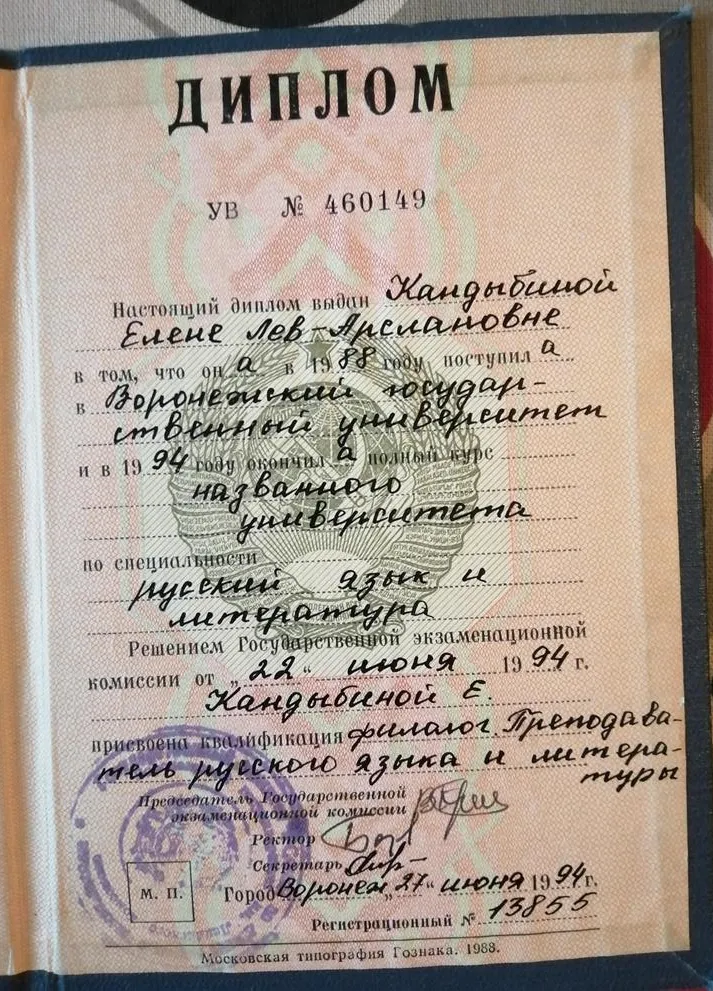 ДИПЛОМ
УВ № 460149
Настоящий диплом выдан Кандыбиной
Елене Лов-Арслановне
в том, что он а в 1988 году поступил а
в Воронежский государ-
ственный университет
и в 1994 году окончил а полный курс
названного
университета
по специальности
русский язык и
литература
Решением Государственной экзаменационной
комиссии от „22“ июня 1994 г.
Кандыбиной Е.
присвоена квалификация филолог. Преподава-
тель русского языка и литера-
туры
Председатель Государственной
экзаменационной комиссии
Ректор
Секретарь
М. П.
Город Воронеж „27“ июня 1994 г.
Регистрационный № 13855
Московская типография Гознака. 1988.